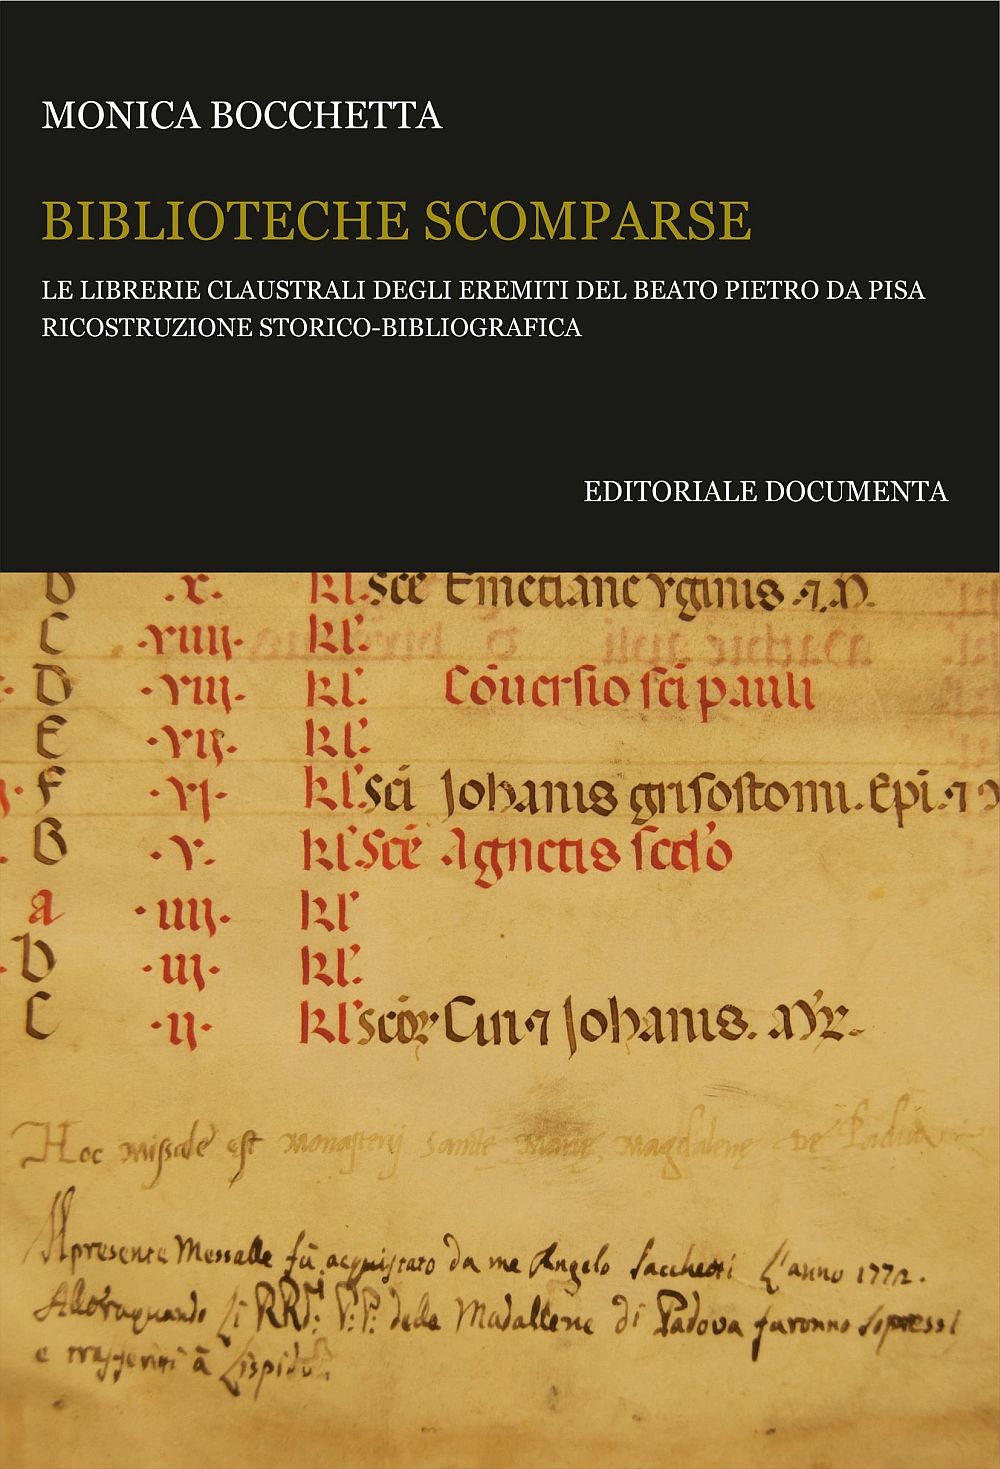 MONICA BOCCHETTA
BIBLIOTECHE SCOMPARSE
LE LIBRERIE CLAUSTRALI DEGLI EREMITI DEL BEATO PIETRO DA PISA
RICOSTRUZIONE STORICO-BIBLIOGRAFICA
EDITORIALE DOCUMENTA
b .x. kl. Sce Emetiane v̾ginis
C .viiii. kl.
D .viii. kl. Cōuersio sc̄i pauli
E .vii. kl.
F .vi. kl. Sc̄i Johanis grisostomi. Ep̄i.
G .v. kl. Sc̄e Agnetis scd̾o
a .iiii. kl
b .iii. kl.
C .ii. kl Scōꝝ Ciri ⁊ Johanis.
Hoc missale est monasterij Sancte Marie Magdalene De Padua
Il presente Messalle fù acquistato da me Angelo Sacchetti L'anno 1772.
Alloraquando li RR.di P:P: delle Madallene di Padova furonno sopressi
e trasferiti à Lispida.